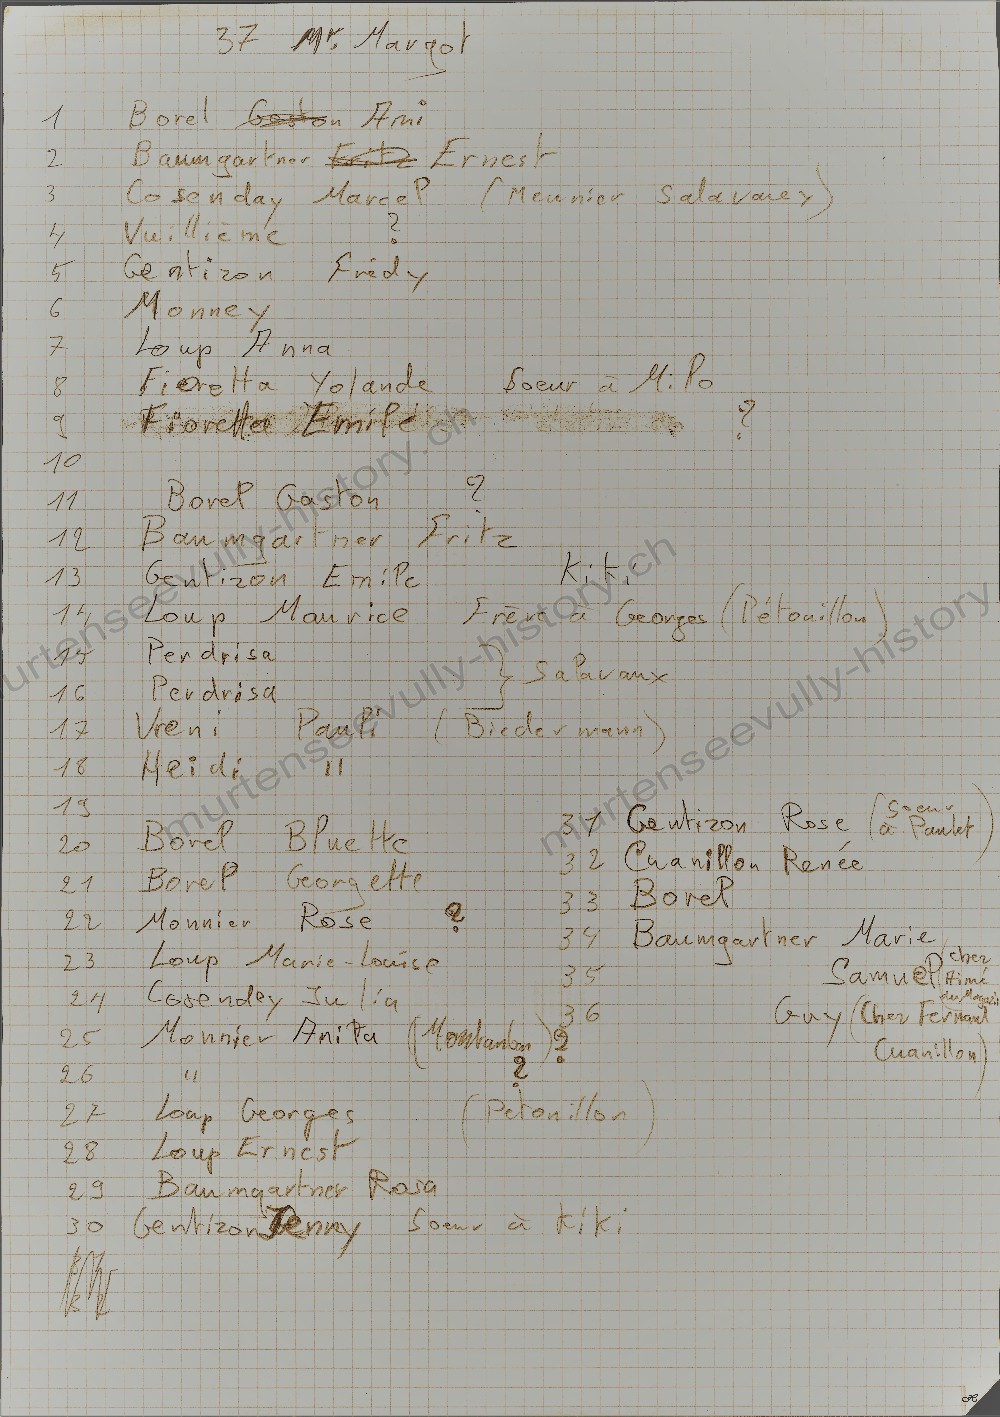 37 Mr. Margot
1 Borel Gaston Ami
2 Baumgartner Fritz Ernest
3 Cosenday Marcel (Meunier Salavaux)
4 Vuillième ?
5 Gentizon Frédy
6 Monney
7 Loup Anna
8 Fioretta Yolande Soeur à Milo
9 Fioretta Emile ?
10
11 Borel Gaston ?
12 Baumgartner Fritz
13 Gentizon Emile Kiki
14 Loup Maurice Frère à Georges (Pétouillon)
15 Perdrisa
} Salavaux
16 Perdrisa
17 Vreni Pauli (Biedermann)
18 Heidi "
19
20 Borel Bluette
21 Borel Georgette
22 Monnier Rose ?
23 Loup Marie-Louise
24 Cosendey Julia
25 Monnier Anita (Montandon) ?
26 " ?
27 Loup Georges (Pétouillon)
28 Loup Ernest
29 Baumgartner Rosa
30 Gentizon Jenny Soeur à Kiki
31 Gentizon Rose (Soeur
à Paulet)
32 Cuanillon Renée
33 Borel
34 Baumgartner Marie
35 Samuel (chez
Aimé
du Magasin
36 Guy (Chez Fernand
Cuanillon)
murtenseevully-history.ch
murtenseevully-history.ch
murtenseevully-history